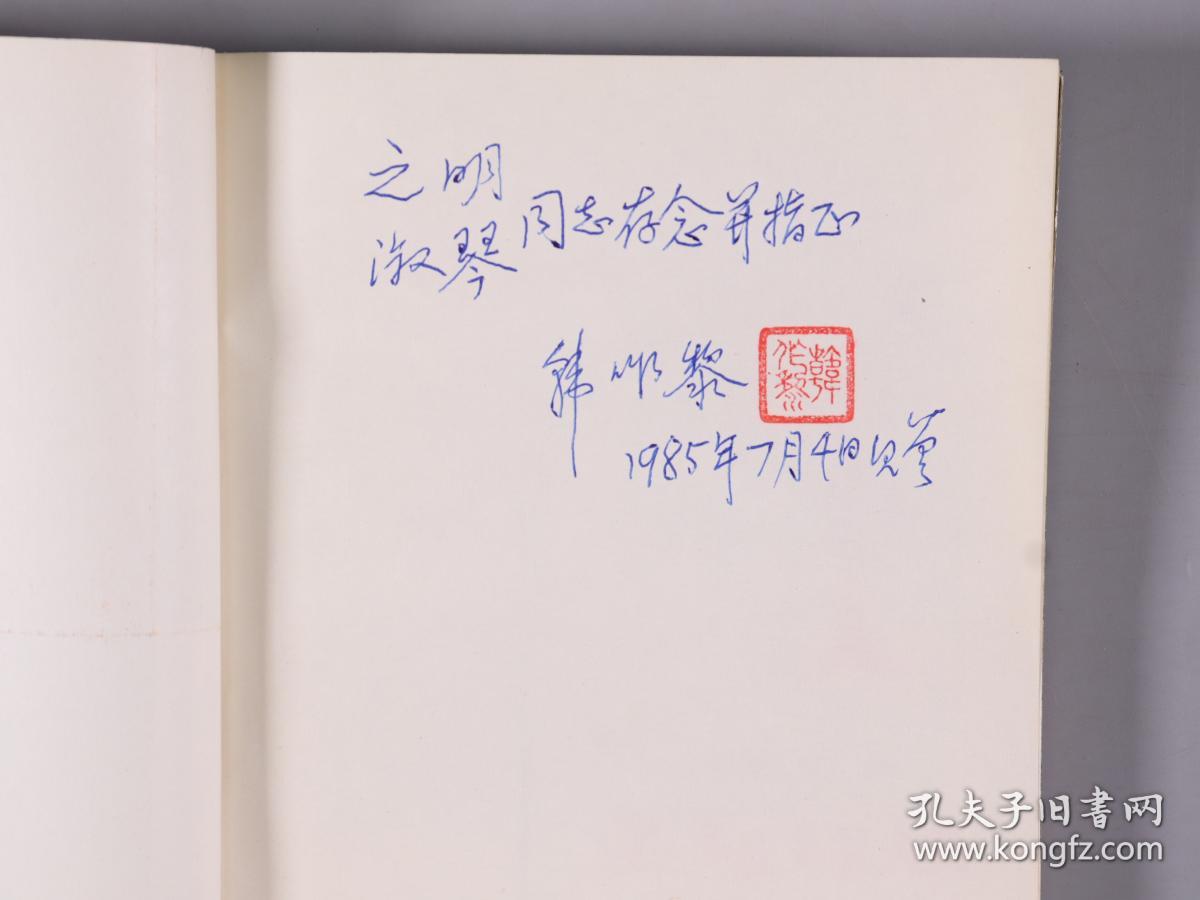 之明
淑琴同志存念并指正
韩作黎
韓作黎
1985年7月4日
孔夫子旧书网
www.kongfz.com